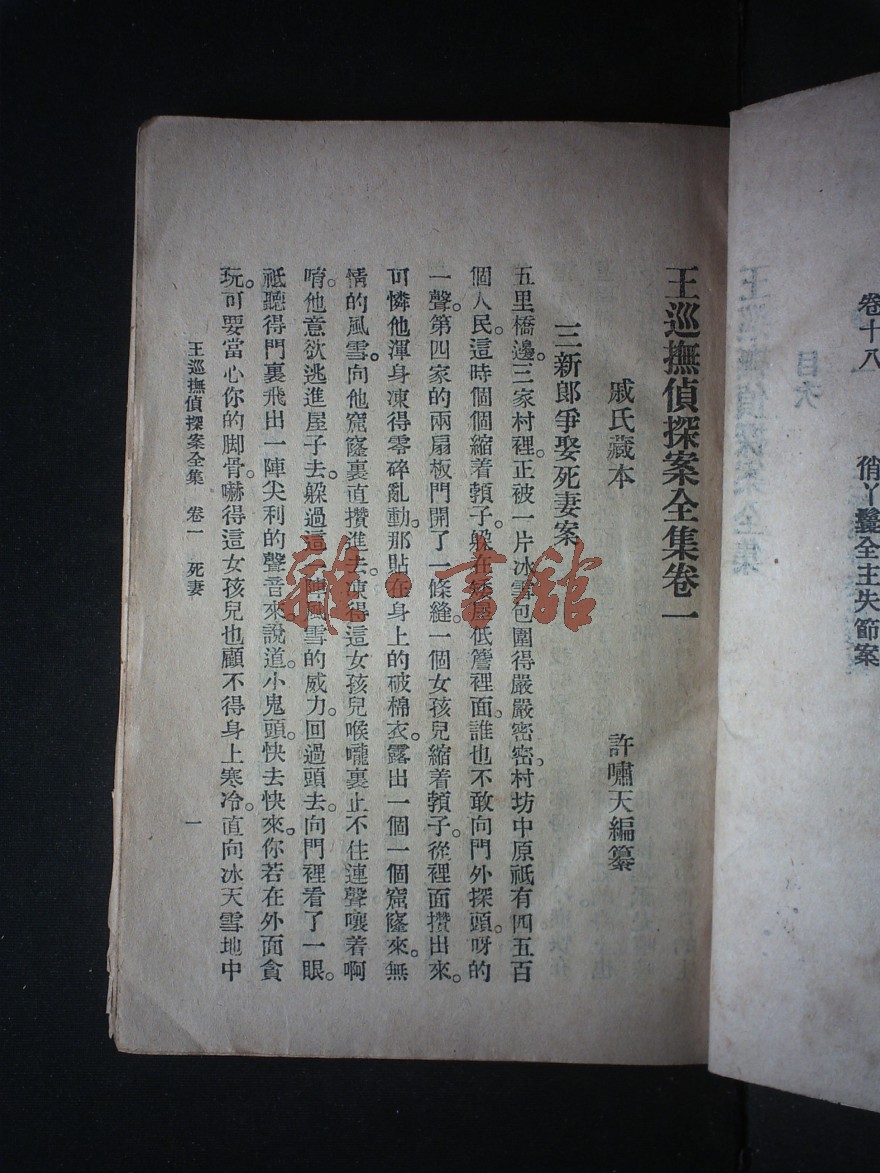 卷十八 俏丫鬟全主失節案
目次
王巡撫偵探案全集卷一
戚氏藏本 許嘯天編纂
三新郎爭娶死妻案
五里橋邊。三家村裡。正被一片冰雪包圍得嚴嚴密密、村坊中原祇有四五百
個人民。這時個個縮着頸子。躲在矮屋低簷裡面。誰也不敢向門外探頭。呀的
一聲。第四家的兩扇板門開了一條縫。一個女孩兒縮着頸子。從裡面攢出來。
可憐他渾身凍得零碎亂動。那貼在身上的破棉衣。露出一個一個窟窿來。無
情的風雪。向他窟窿裏直攢進去。凍得這女孩兒喉嚨裏止不住連聲嚷着啊
唷。他意欲逃進屋子去。躲過這一陣風雪的威力。回過頭去。向門裡看了一眼。
祇聽得門裏飛出一陣尖利的聲音來。說道。小鬼頭。快去快來。你若在外面貪
玩。可要當心你的脚骨。嚇得這女孩兒也顧不得身上寒冷。直向冰天雪地中
王巡撫偵探案全集 卷一 死妻 一
雜·書館